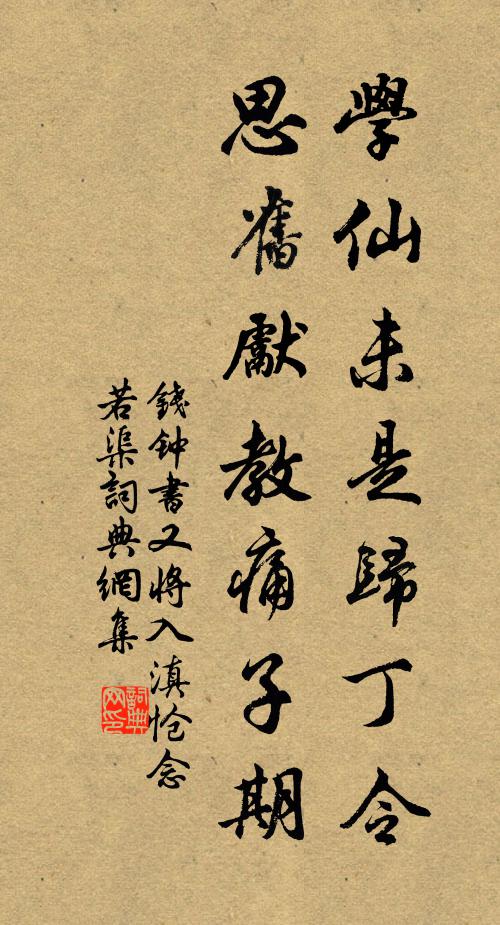 學仙未是歸丁令
思舊獻教痛子期
錢钟書又將入滇怆念
若渠詞典網集
詞典
网印